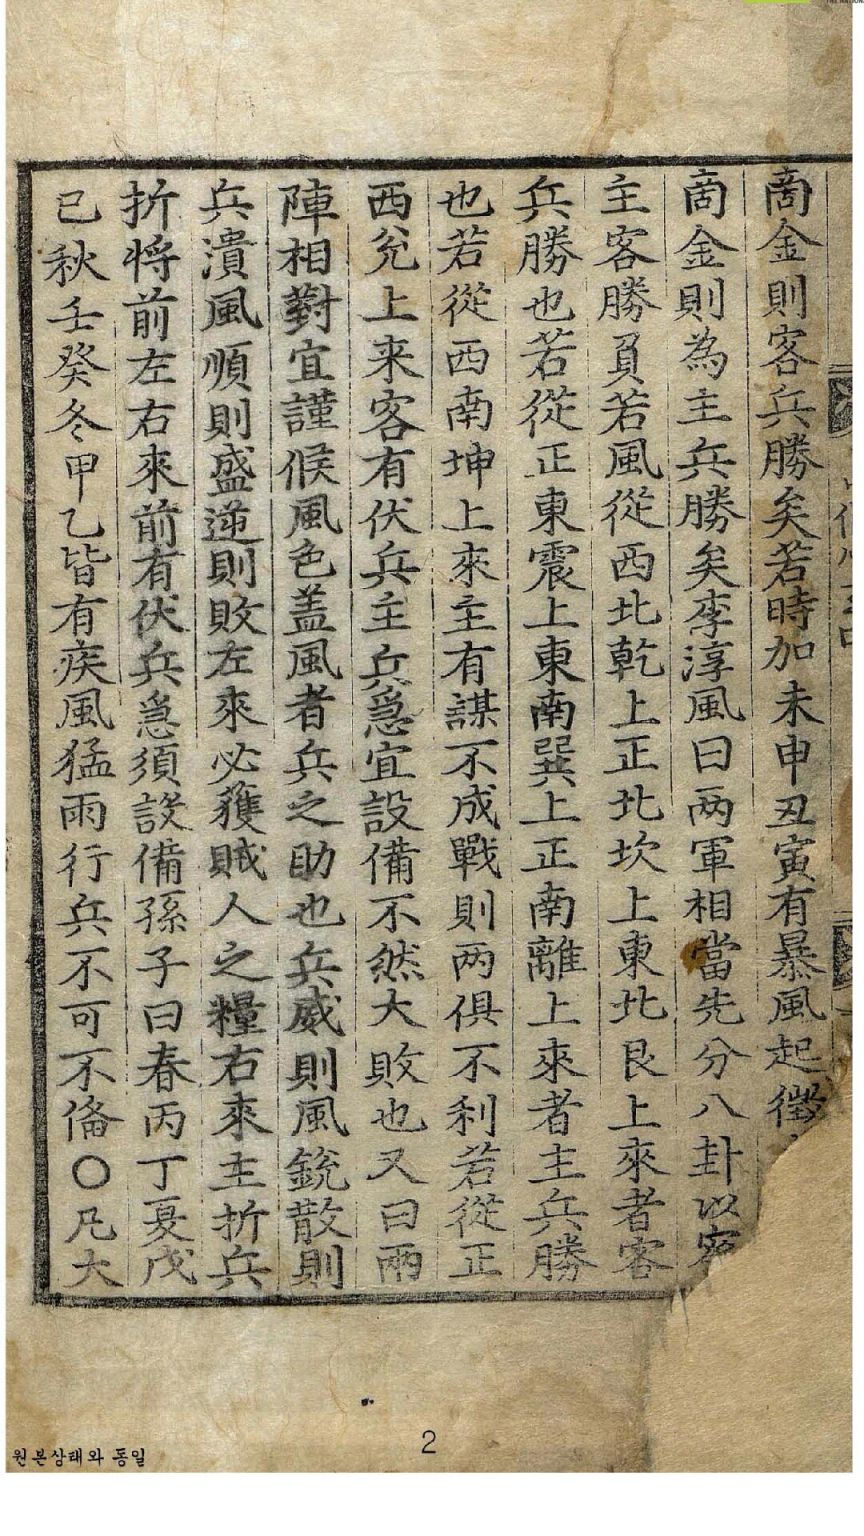 商金則客兵勝矣若時加未申丑寅有暴風起徵
商金則為主兵勝矣李淳風曰两軍相當先分八卦以察
主客勝負若風從西北乾上正北坎上東北艮上來者客
兵勝也若從正東震上東南巽上正南離上來者主兵勝
也若從西南坤上來主有謀不成戰則两俱不利若從正
西兊上来客有伏兵主兵急宜設備不然大敗也又曰兩
陣相對宜謹候風色盖風者兵之助也兵威則風銃散則
兵潰風順則盛逆則敗左來必獲賊人之糧右來主折兵
折將前左右來前有伏兵急須設備孫子曰春丙丁夏戊
己秋壬癸冬甲乙皆有疾風猛雨行兵不可不俻○凡大
2
원본상태와 동일